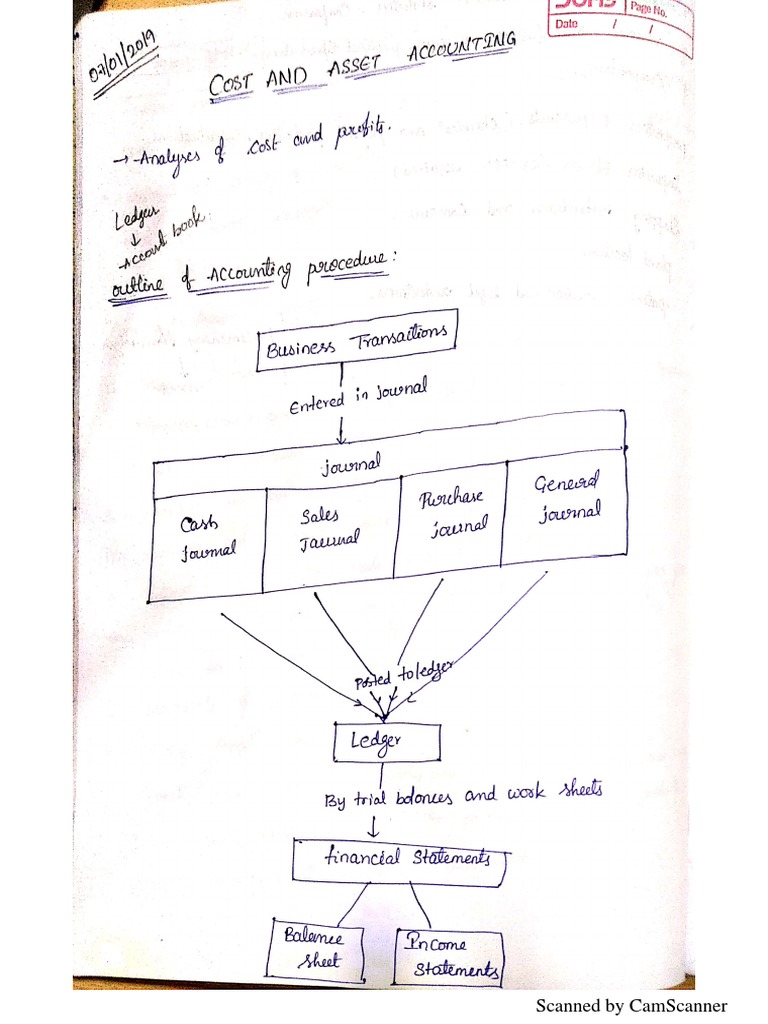 Page No.
Date / /
07/01/2019
COST AND ASSET ACCOUNTING
→ Analyses of cost and profits.
Ledger
↓
Account book
outline of Accounting procedure:
Business Transactions
Entered in journal
journal
Cash
journal
Sales
Journal
Purchase
journal
General
journal
Posted to ledger
Ledger
By trial balances and work sheets
financial statements
Balance
sheet
Income
statements
Scanned by CamScanner